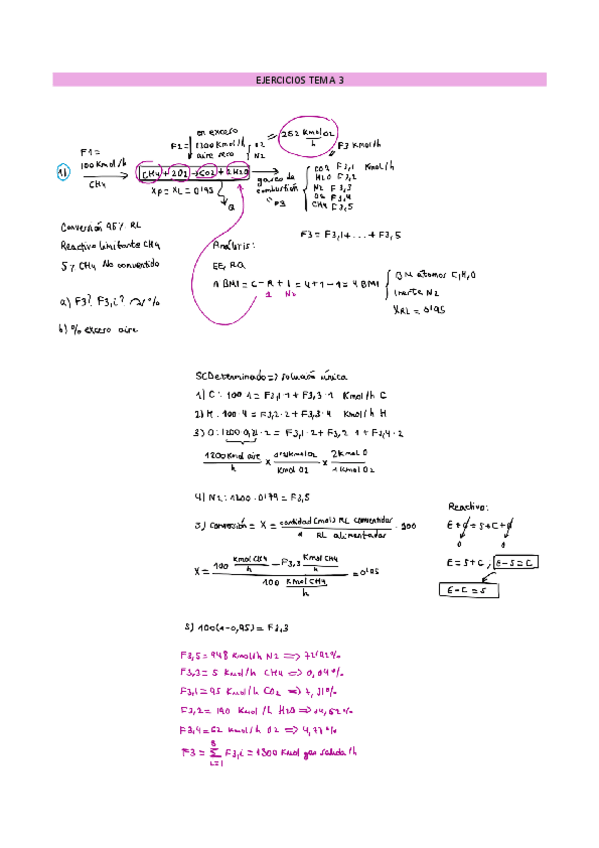 EJERCICIOS TEMA 3
1)
F1 =
100 Kmol/h
CH4
en exceso
F2 = 1200 Kmol/h
aire seco
O2
N2
=> 252 Kmol O2 / h
CH4 + 2O2 → CO2 + 2H2O
XP = XL = 0'95
Q
gases de
combustión
F3
F3 Kmol/h
CO2 F3,1 Kmol/h
H2O F3,2
N2 F3,3
O2 F3,4
CH4 F3,5
F3 = F3,1 + ... + F3,5
Conversión 95% RL
Reactivo limitante CH4
5% CH4 No convertido
a) F3? F3,i? %
b) % exceso aire
Análisis:
EE, RQ
A BMI = C - R + I = 4 + 1 - 1 = 4 BMI
1 N2
BM átomos C, H, O
inerte N2
XRL = 0'95
SC Determinado => solución única
1) C: 100·1 = F3,1·1 + F3,3·1 Kmol/h C
2) H: 100·4 = F3,2·2 + F3,3·4 Kmol/h H
3) O: 1200·0,21·2 = F3,1·2 + F3,2·1 + F3,4·2
1200 Kmol aire / h x 0'21 Kmol O2 / Kmol O2 x 2 Kmol O / 1 Kmol O2
4) N2: 1200·0'79 = F3,5
5) Conversión = X = cantidad (mol) RL convertidar / RL alimentadar · 100
X = (100 Kmol CH4 / h - F3,3 Kmol CH4 / h) / (100 Kmol CH4 / h) = 0'95
Reactivo:
E + G = S + C + A
0 0
E = S + C, E - S = C
E - C = S
5) 100(1-0,95) = F3,3
F3,5 = 948 Kmol/h N2 => 72,92%
F3,3 = 5 Kmol/h CH4 => 0,04%
F3,1 = 95 Kmol/h CO2 => 7,31%
F3,2 = 190 Kmol/h H2O => 14,62%
F3,4 = 62 Kmol/h O2 => 4,77%
F3 = Σ F3,i = 1300 Kmol gas salida/h
i=1